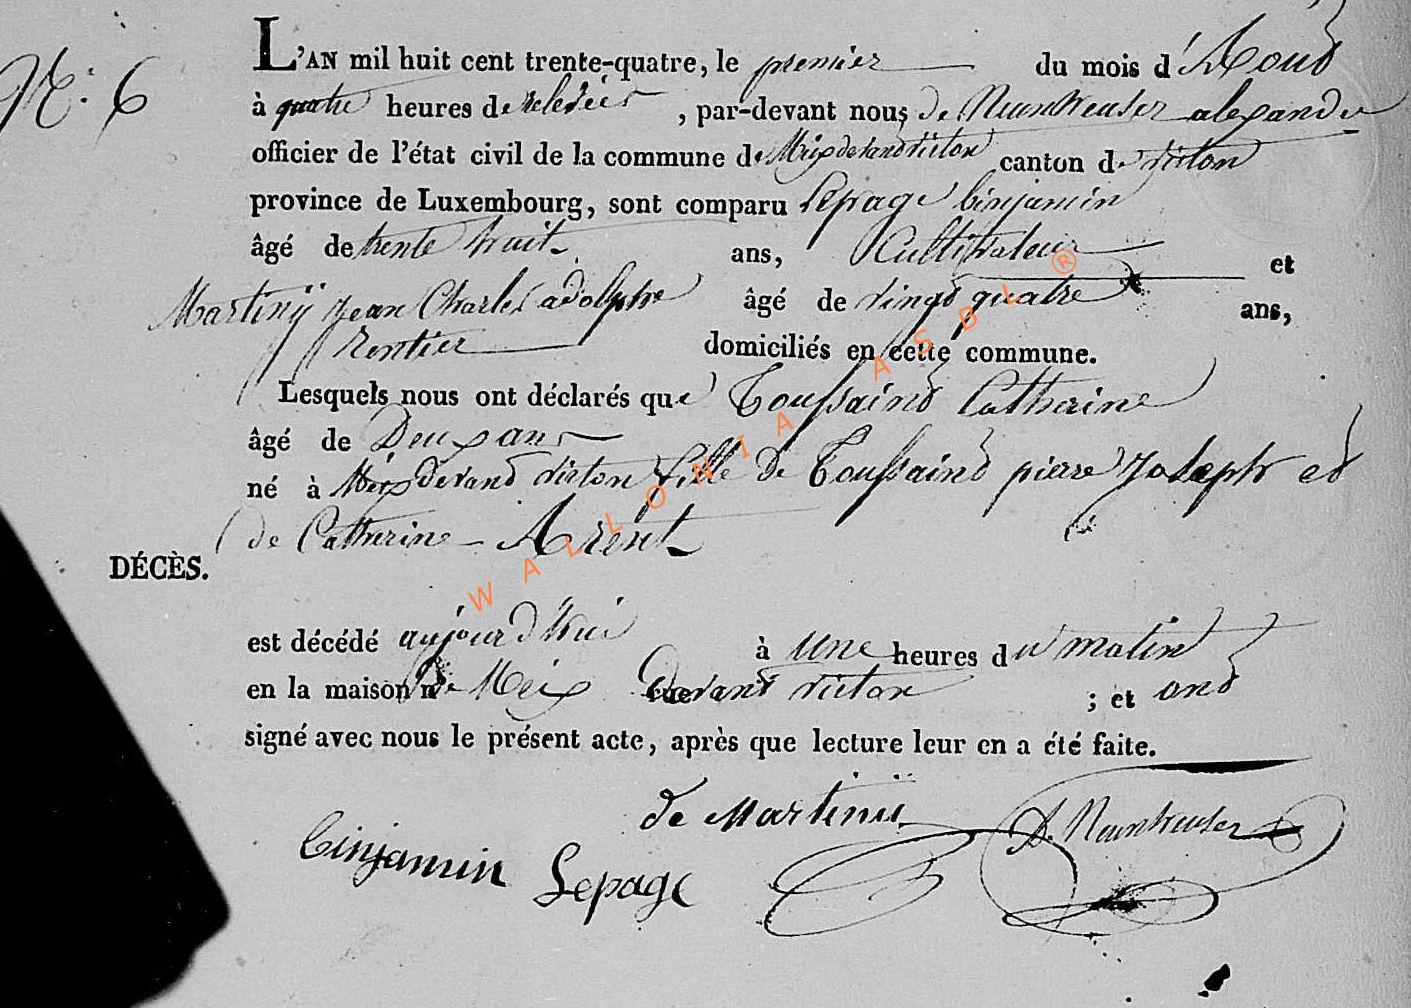 N.° 6
L'AN mil huit cent trente-quatre, le premier du mois d'Aout
à quatre heures de relevée, par-devant nous de Neunheuser alexandre
officier de l'état civil de la commune de Meix devant virton canton de virton
province de Luxembourg, sont comparu Lepage binjamin
âgé de trente huit ans, Cultivateur et
Martiny jean Charles adolphe âgé de vingt quatre ans,
Rentier domiciliés en cette commune.
Lesquels nous ont déclarés que Toussaint Catherine
âgé de Deux ans
né à Meix Devant virton fille de Toussaint pierre Joseph et
de Catherine Arent
DÉCÈS.
est décédé aujourd'hui à une heures du matin
en la maison de Meix Devant virton ; et ont
signé avec nous le présent acte, après que lecture leur en a été faite.
de Martinÿ A. Neunheuser
binjamin Lepage
WALLONIA ASBL ®